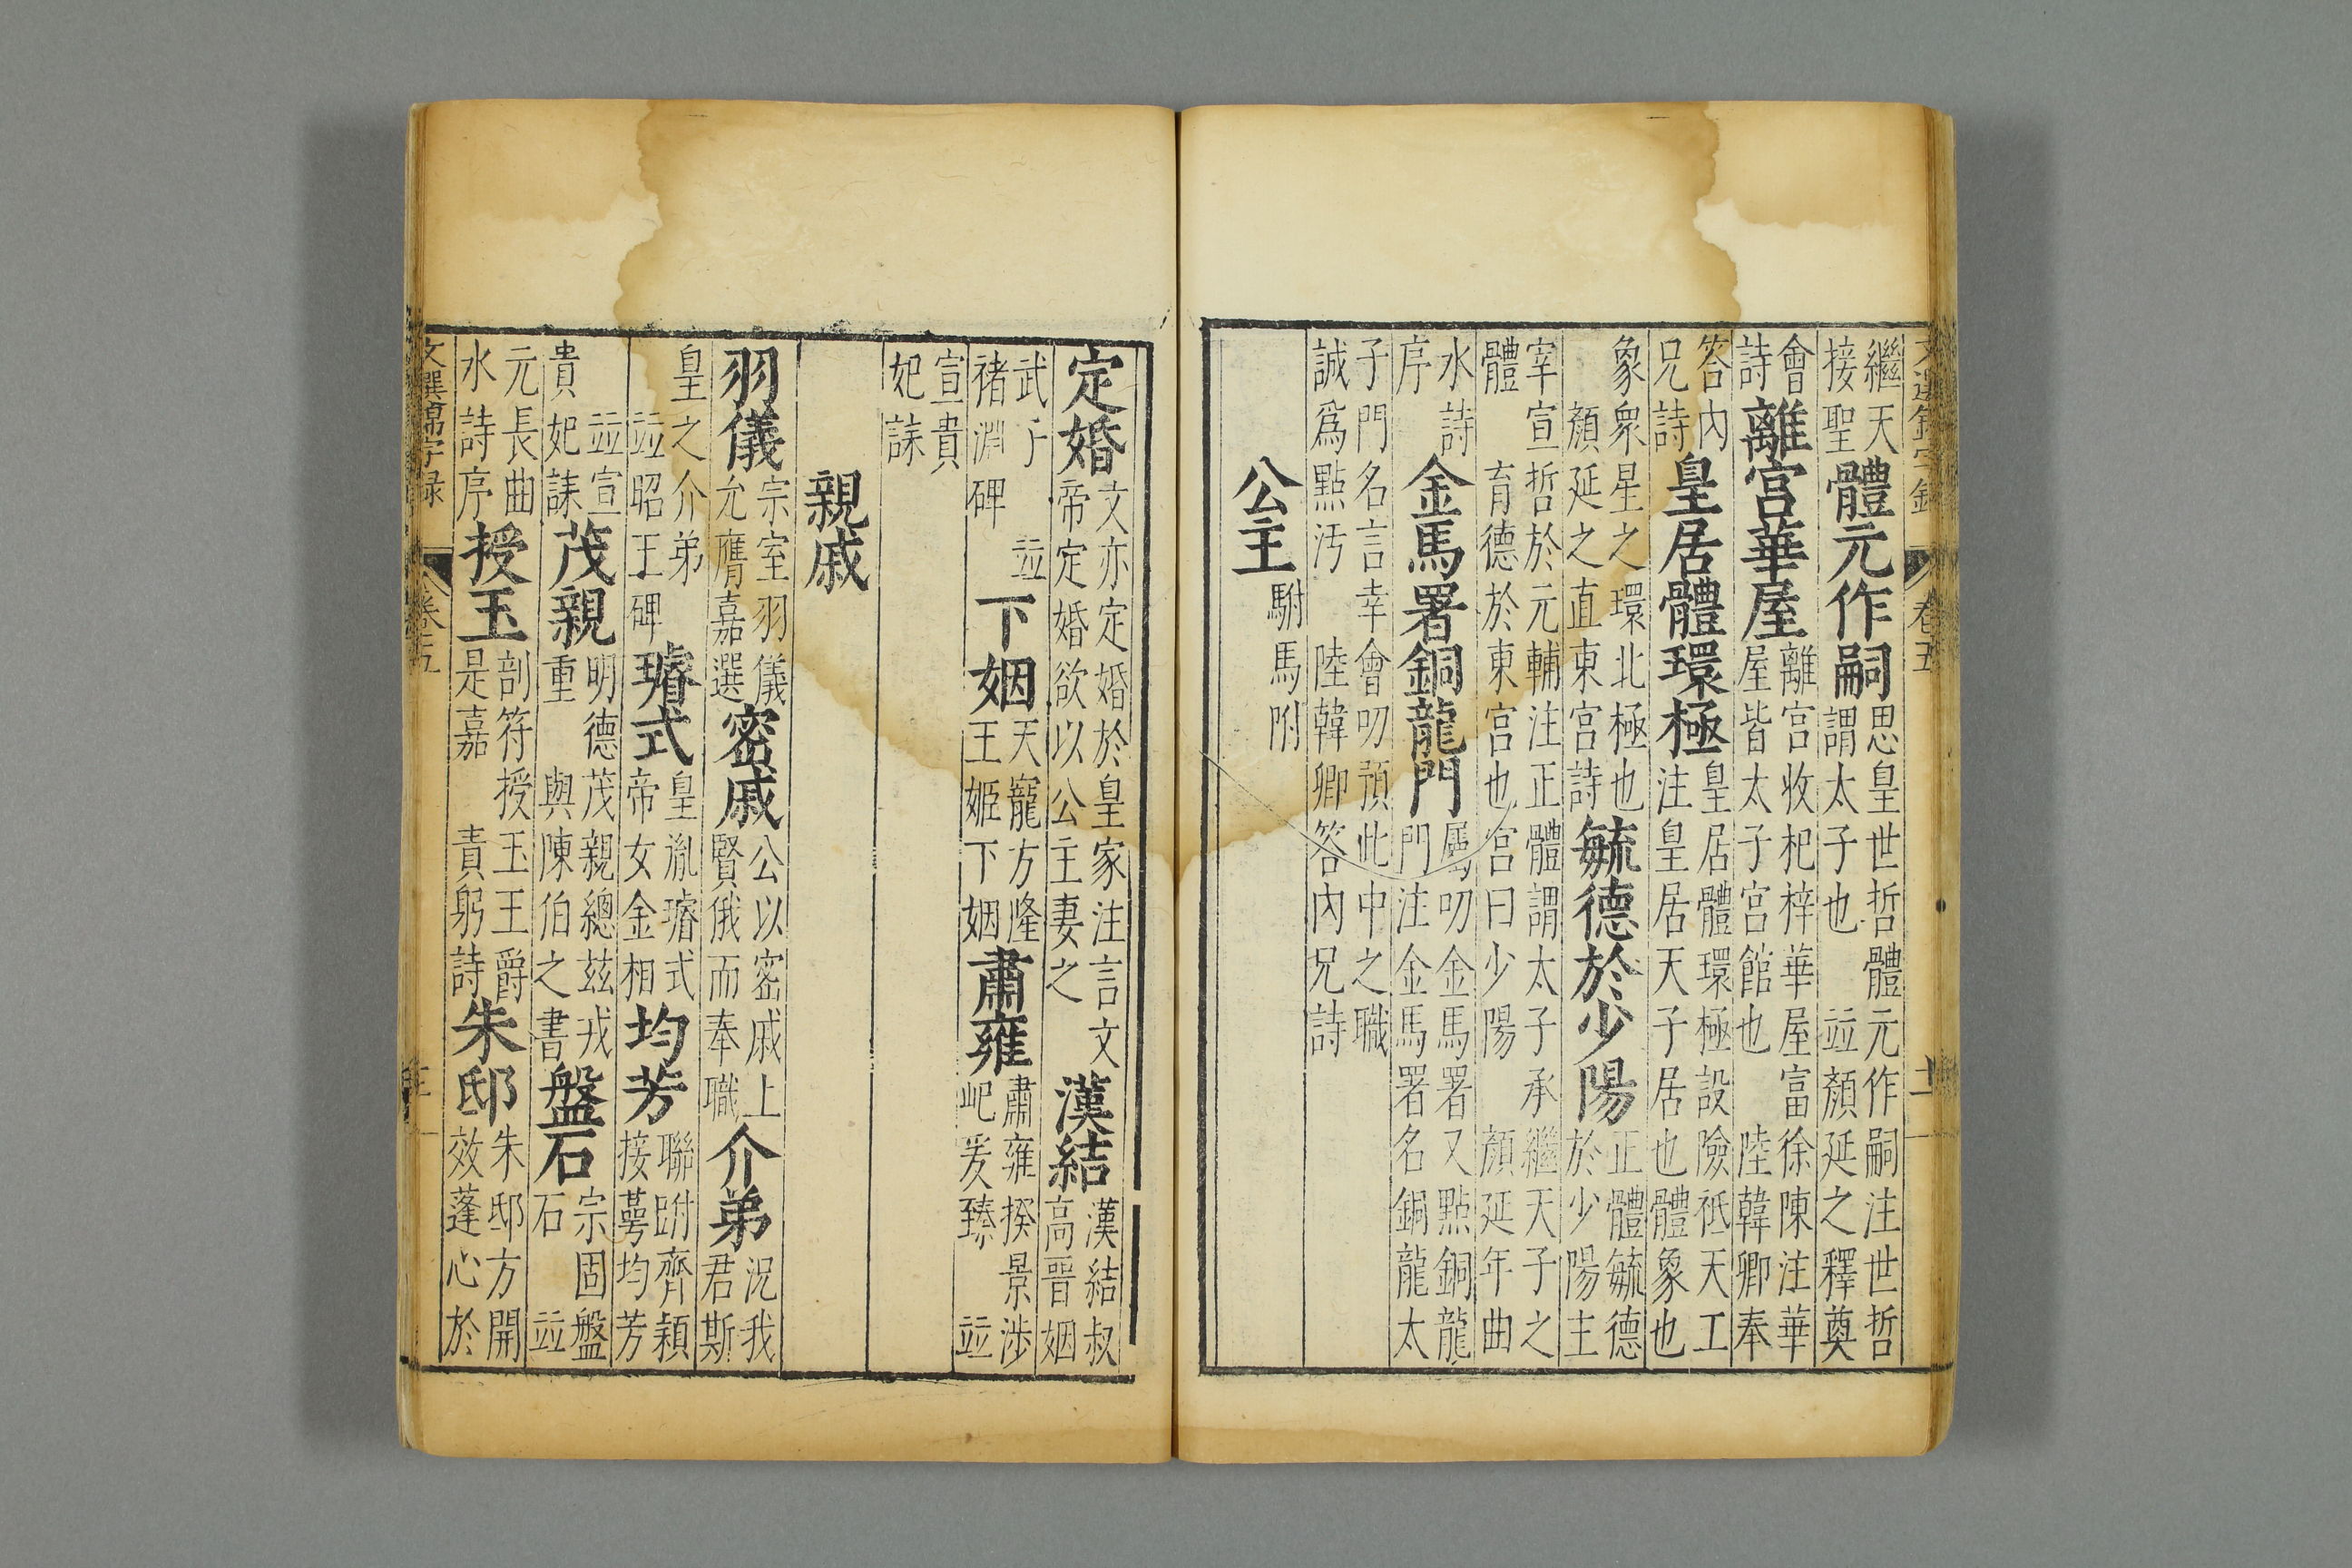 文選錦字錄 卷五 十一
繼天接聖體元作嗣思皇世哲體元作嗣注世哲謂太子也 並顏延之釋奠
會詩離宮華屋離宮收杞梓華屋富徐陳注華屋皆太子宮館也 陸韓卿奉
答內兄詩皇居體環極皇居體環極設險祗天工注皇居天子居也體象也
象衆星之環北極也 顏延之直東宮詩毓德於少陽正體毓德於少陽主
宰宣哲於元輔注正體謂太子承繼天子之體 育德於東宮也宮曰少陽 顏延年曲
水詩序金馬署銅龍門屬叨金馬署又點銅龍門注金馬署名銅龍太
子門名言幸會叨預此中之職誠爲點汚 陸韓卿答內兄詩
公主駙馬附
定婚文亦定婚於皇家注言文帝定婚欲以公主妻之漢結漢結叔高晉姻
武子 並褚淵碑下姻天寵方隆王姬下姻肅雍肅雍揆景涉屺爰臻 並
宣貴妃誄
親戚
羽儀宗室羽儀允膺嘉選密戚公以密戚上賢俄而奉職介弟況我君斯
皇之介弟 並昭王碑璿式皇胤璿式帝女金相均芳聯跗齊穎接萼均芳
並宣貴妃誄茂親明德茂親總玆戎重 與陳伯之書盤石宗固盤石 並
元長曲水詩序授玉剖符授玉王爵是嘉 責躬詩朱邸朱邸方開效蓬心於
文選錦字錄 卷五